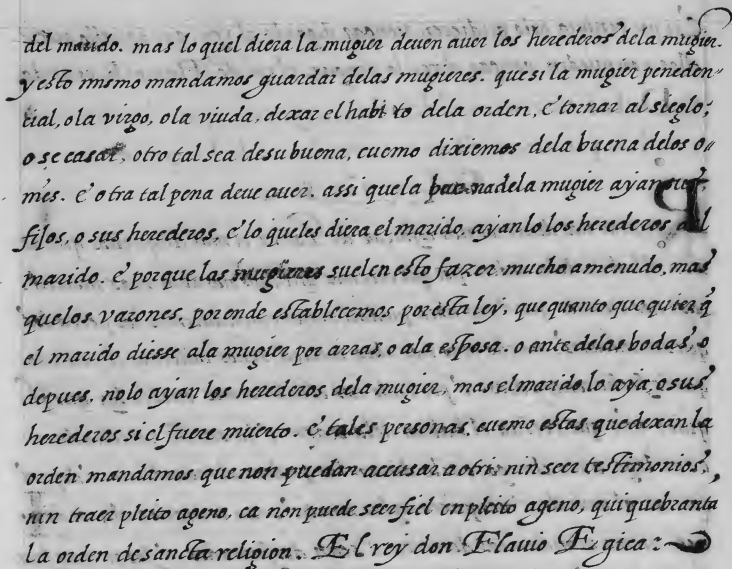 del marido. mas lo quel diera la mugier deuen auer los herederos dela mugier.
y esto mismo mandamos guardar delas mugieres. que si la mugier peneden-
cial, o la virgo, o la viuda, dexar el habito dela orden, e tornar al sieglo;
o se casar, otro tal sea de su buena, cuemo dixiemos dela buena delos o-
mes. e otra tal pena deue auer. assi que la buena dela mugier ayan
fijos, o sus herederos, e lo queles diera el marido, ayanlo los herederos del
marido. e porque las mugieres suelen esto fazer mucho amenudo, mas
que los varones. por ende establecemos por esta ley, que quanto que quier q̃
el marido diesse ala mugier por arras, o ala esposa. o ante delas bodas, o
depues. no lo ayan los herederos dela mugier, mas el marido lo aya, o sus
herederos si el fuere muerto. e tales personas, cuemo estas que dexan la
orden mandamos que non puedan accusar a otri, nin seer testimonios,
nin traer pleito ageno, ca non puede seer fiel en pleito ageno, qui quebranta
la orden de sancta religion. El rey don Flauio Egica:~